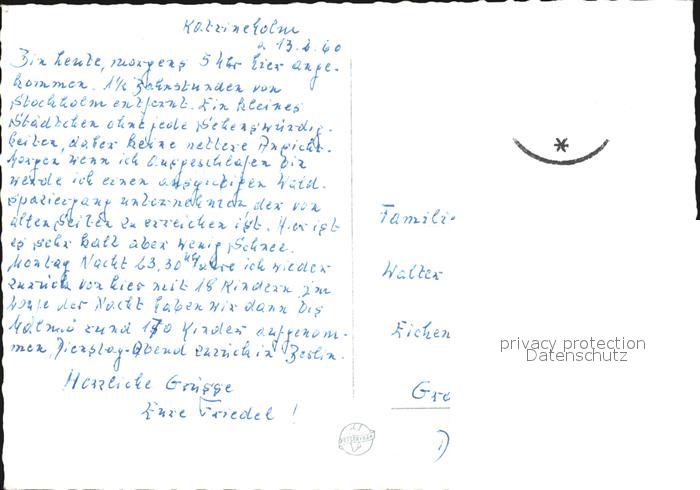 Katrineholm
d. 13.2.60
Bin heute, morgens 5 Uhr hier ange-
kommen. 1½ Bahnstunden von
Stockholm entfernt. Ein kleines
Städtchen ohne jede Sehenswürdig-
keiten, daher keine nettere Ansicht.
Morgen wenn ich ausgeschlafen bin
werde ich einen ausgiebigen Wald-
spaziergang unternehmen der von
allen Seiten zu erreichen ist. Hier ist
es sehr kalt aber wenig Schnee.
Montag Nacht 23,30 Uhr fahre ich wieder
zurück von hier mit 18 Kindern im
Laufe der Nacht haben wir dann bis
Malmö rund 170 Kinder aufgenom-
men, Dienstag-Abend zurück in Berlin.
Herzliche Grüsse
Eure Friedel!
Famili
Walter
Eichen
Gro
privacy protection
Datenschutz